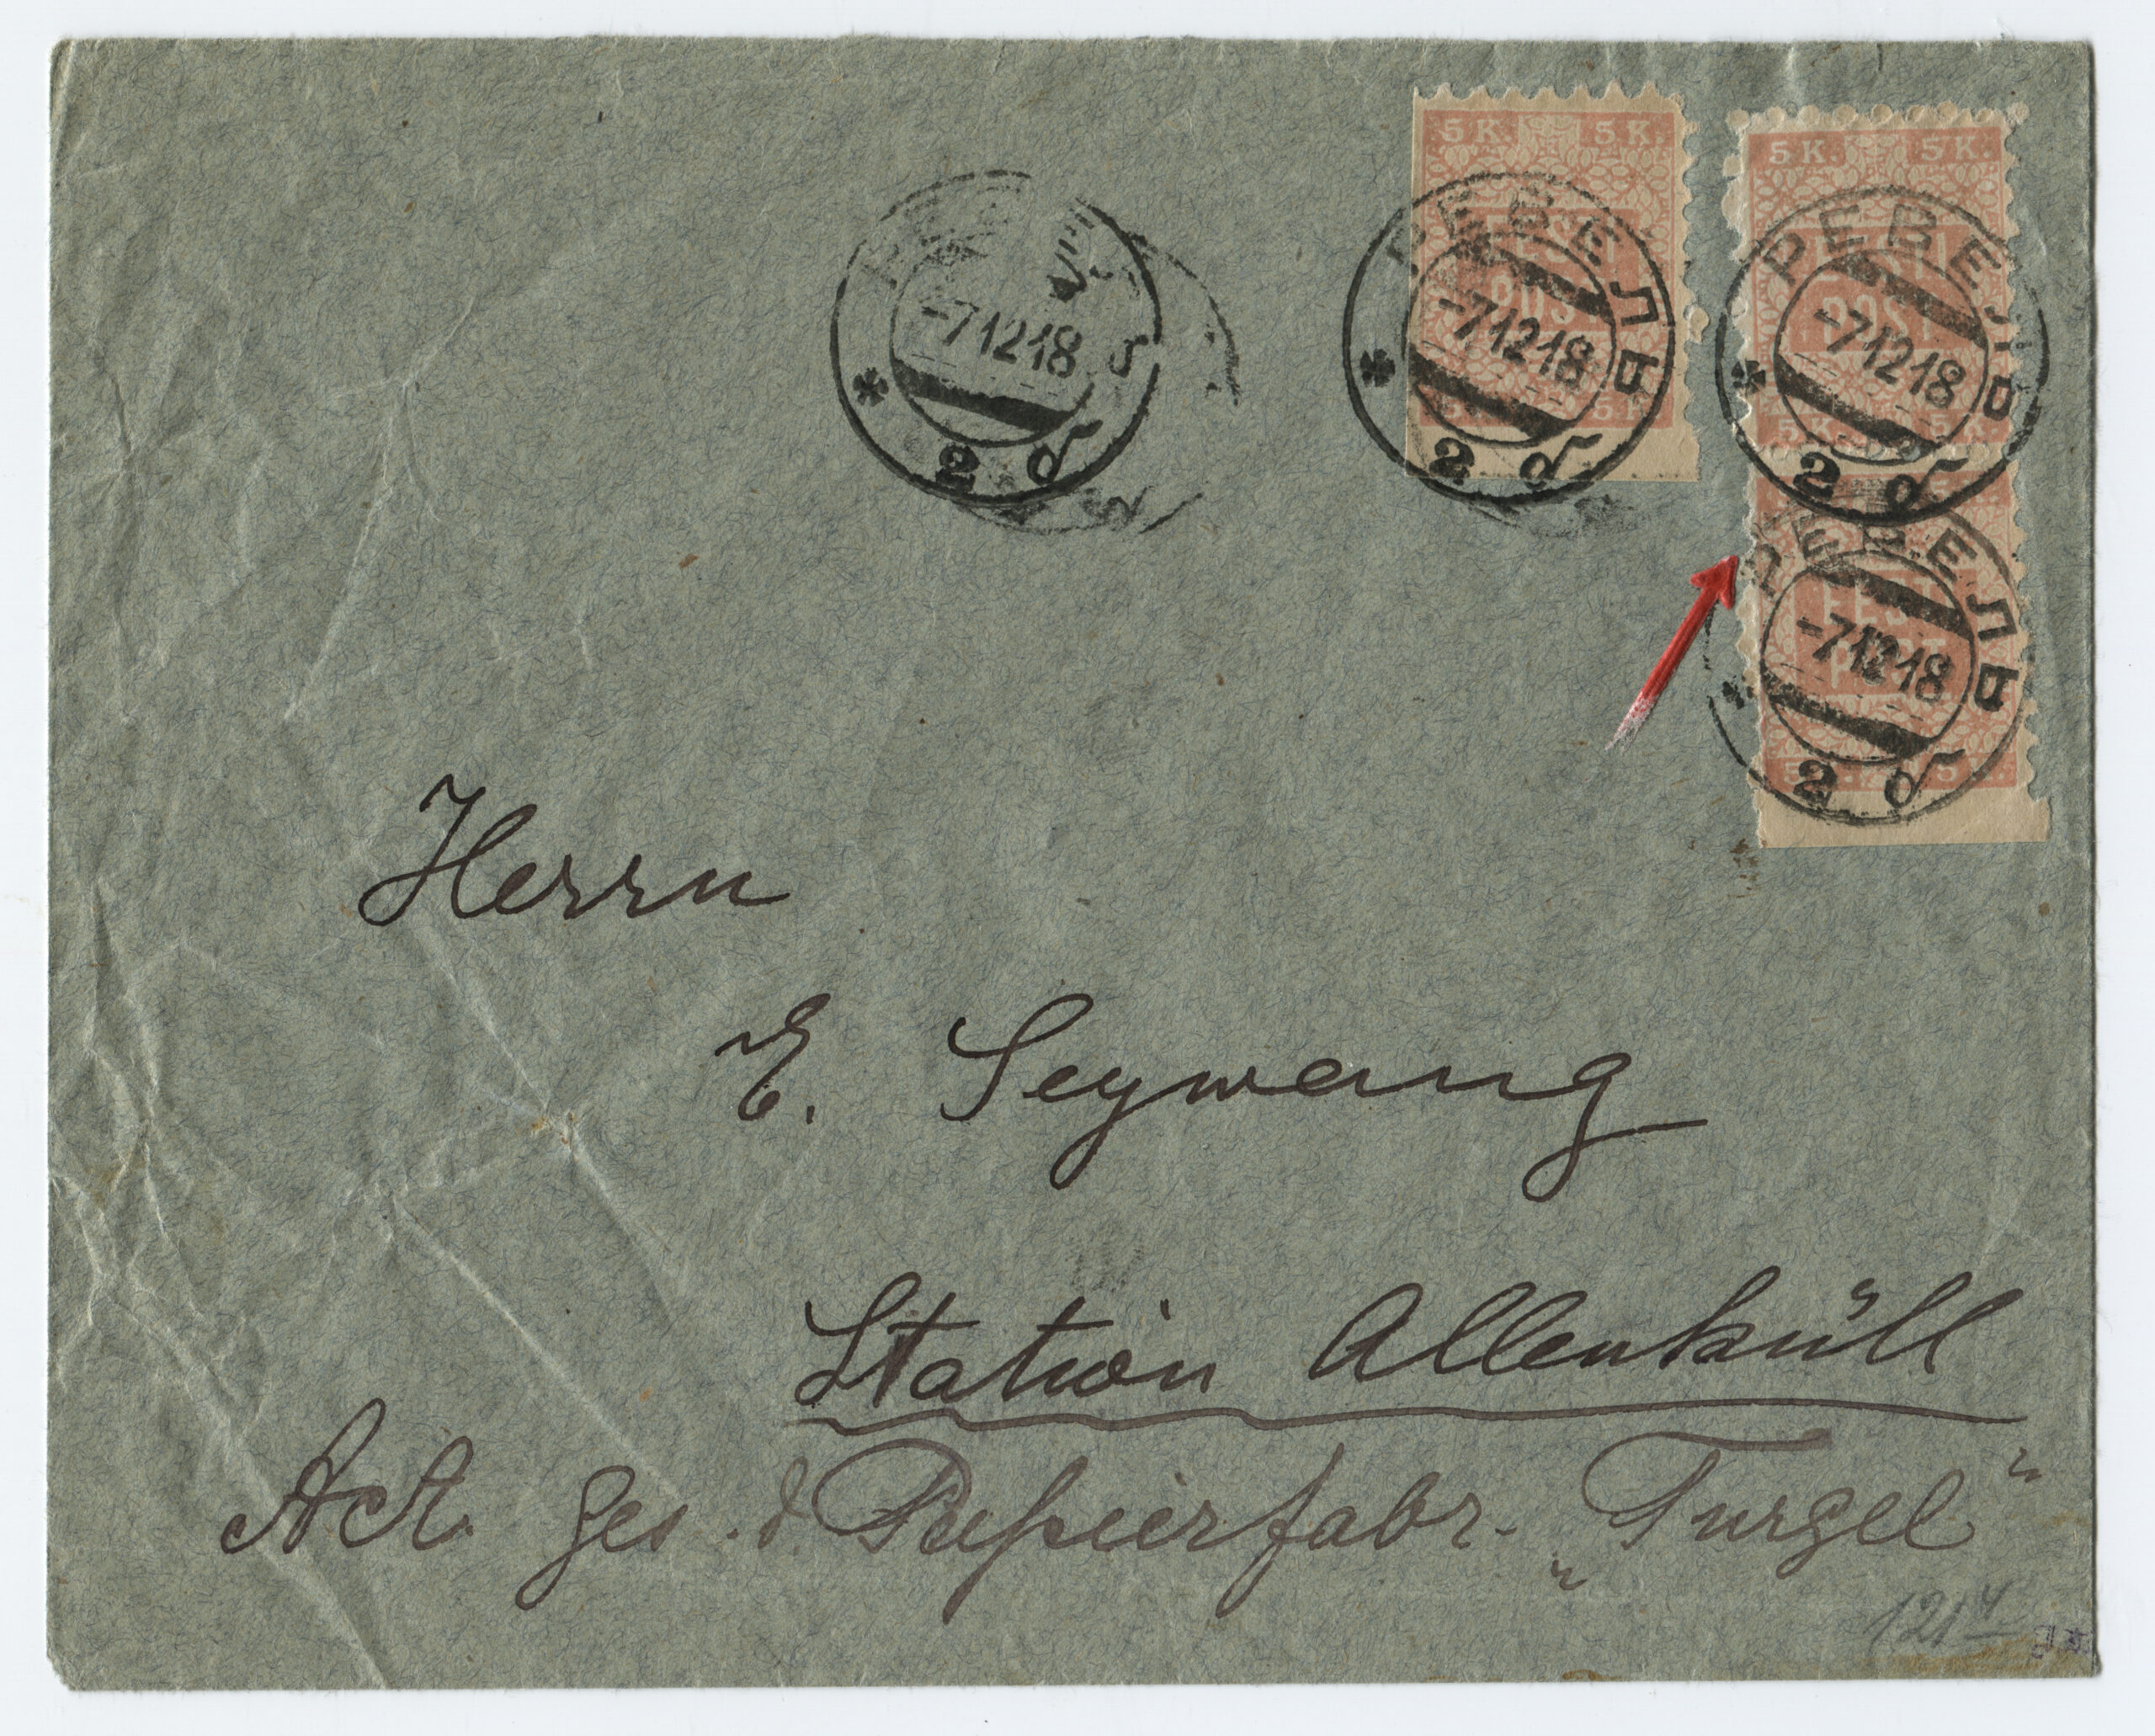 5 K. 5 K.
EESTI
POST
5 K. 5 K.
5 K. 5 K.
EESTI
POST
5 K. 5 K.
EESTI
РЕВЕЛЬ
-7 12 18
2 б
РЕВЕЛЬ
-7 12 18
2 б
РЕВЕЛЬ
-7 12 18
2 б
-7 12 18
2 б
Herrn
E. Seywang
Station Allenküll
Act. Ges. d. Papierfabr. „Turgel“